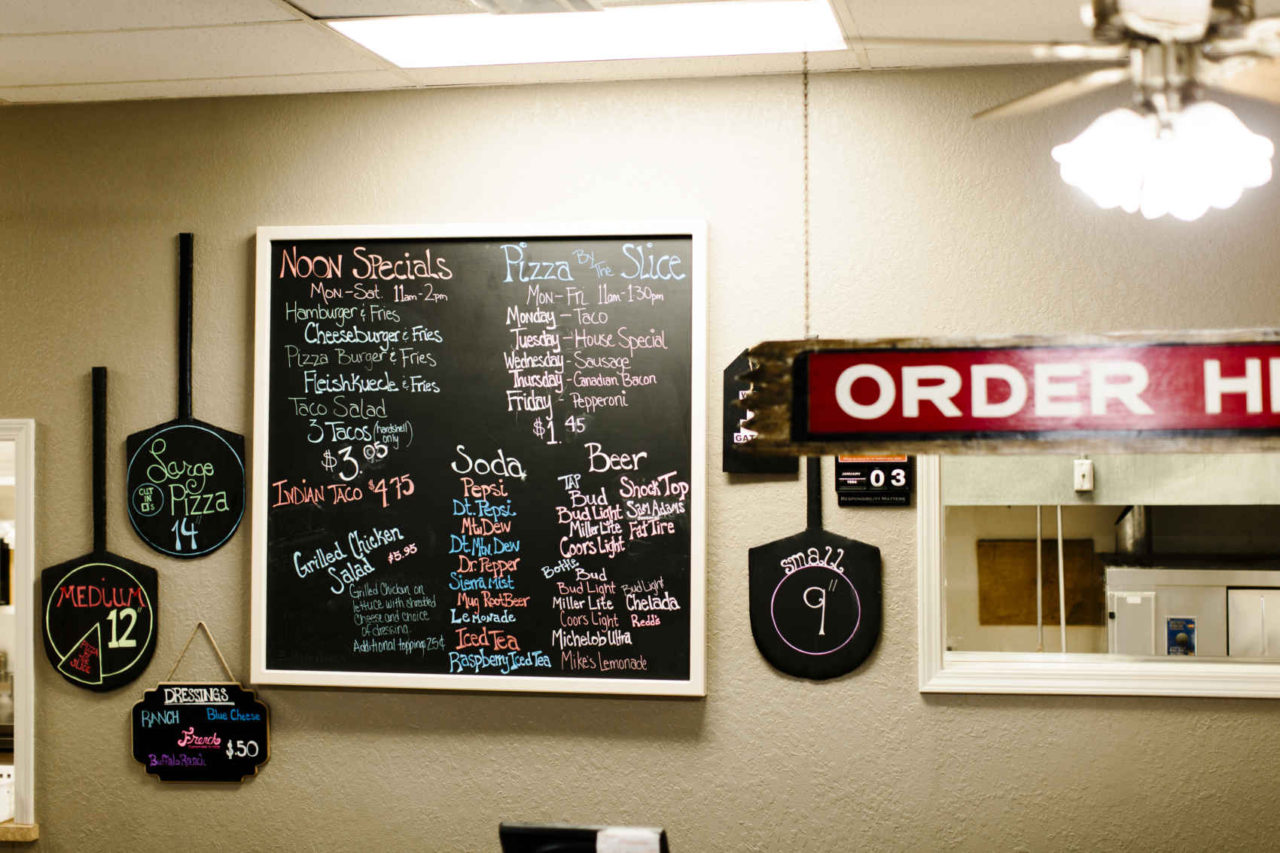 Noon Specials
Mon.-Sat. 11am-2pm
Hamburger & Fries
Cheeseburger & Fries
Pizza Burger & Fries
Fleishkuecle & Fries
Taco Salad
3 Tacos (hardshell only)
$3.05
Indian Taco $4.75
Grilled Chicken
Salad $5.95
Grilled Chicken on
lettuce with shredded
Cheese and choice
of dressing.
Additional topping 25¢
Pizza By The Slice
Mon-Fri 11am-130pm
Monday - Taco
Tuesday - House Special
Wednesday - Sausage
Thursday - Canadian Bacon
Friday - Pepperoni
$1.45
Soda
Pepsi
Dt. Pepsi
Mt. Dew
Dt. Mtn. Dew
Dr. Pepper
Sierra Mist
Mug Root Beer
Lemonade
Iced Tea
Raspberry Iced Tea
Beer
Tap
Bud
Bud Light
Miller Lite
Coors Light
Shock Top
Sam Adams
Fat Tire
Bottle
Bud
Bud Light
Miller Lite
Coors Light
Michelob Ultra
Mike's Lemonade
Bud Light
Chelada
Redd's
Large
Pizza
CUT IN
14"
MEDIUM
12
DRESSINGS
RANCH
Blue Cheese
French
$.50
Buffalo Ranch
small
9"
ORDER
GAT
JANUARY
03
RESPONSIBILITY MATTERS